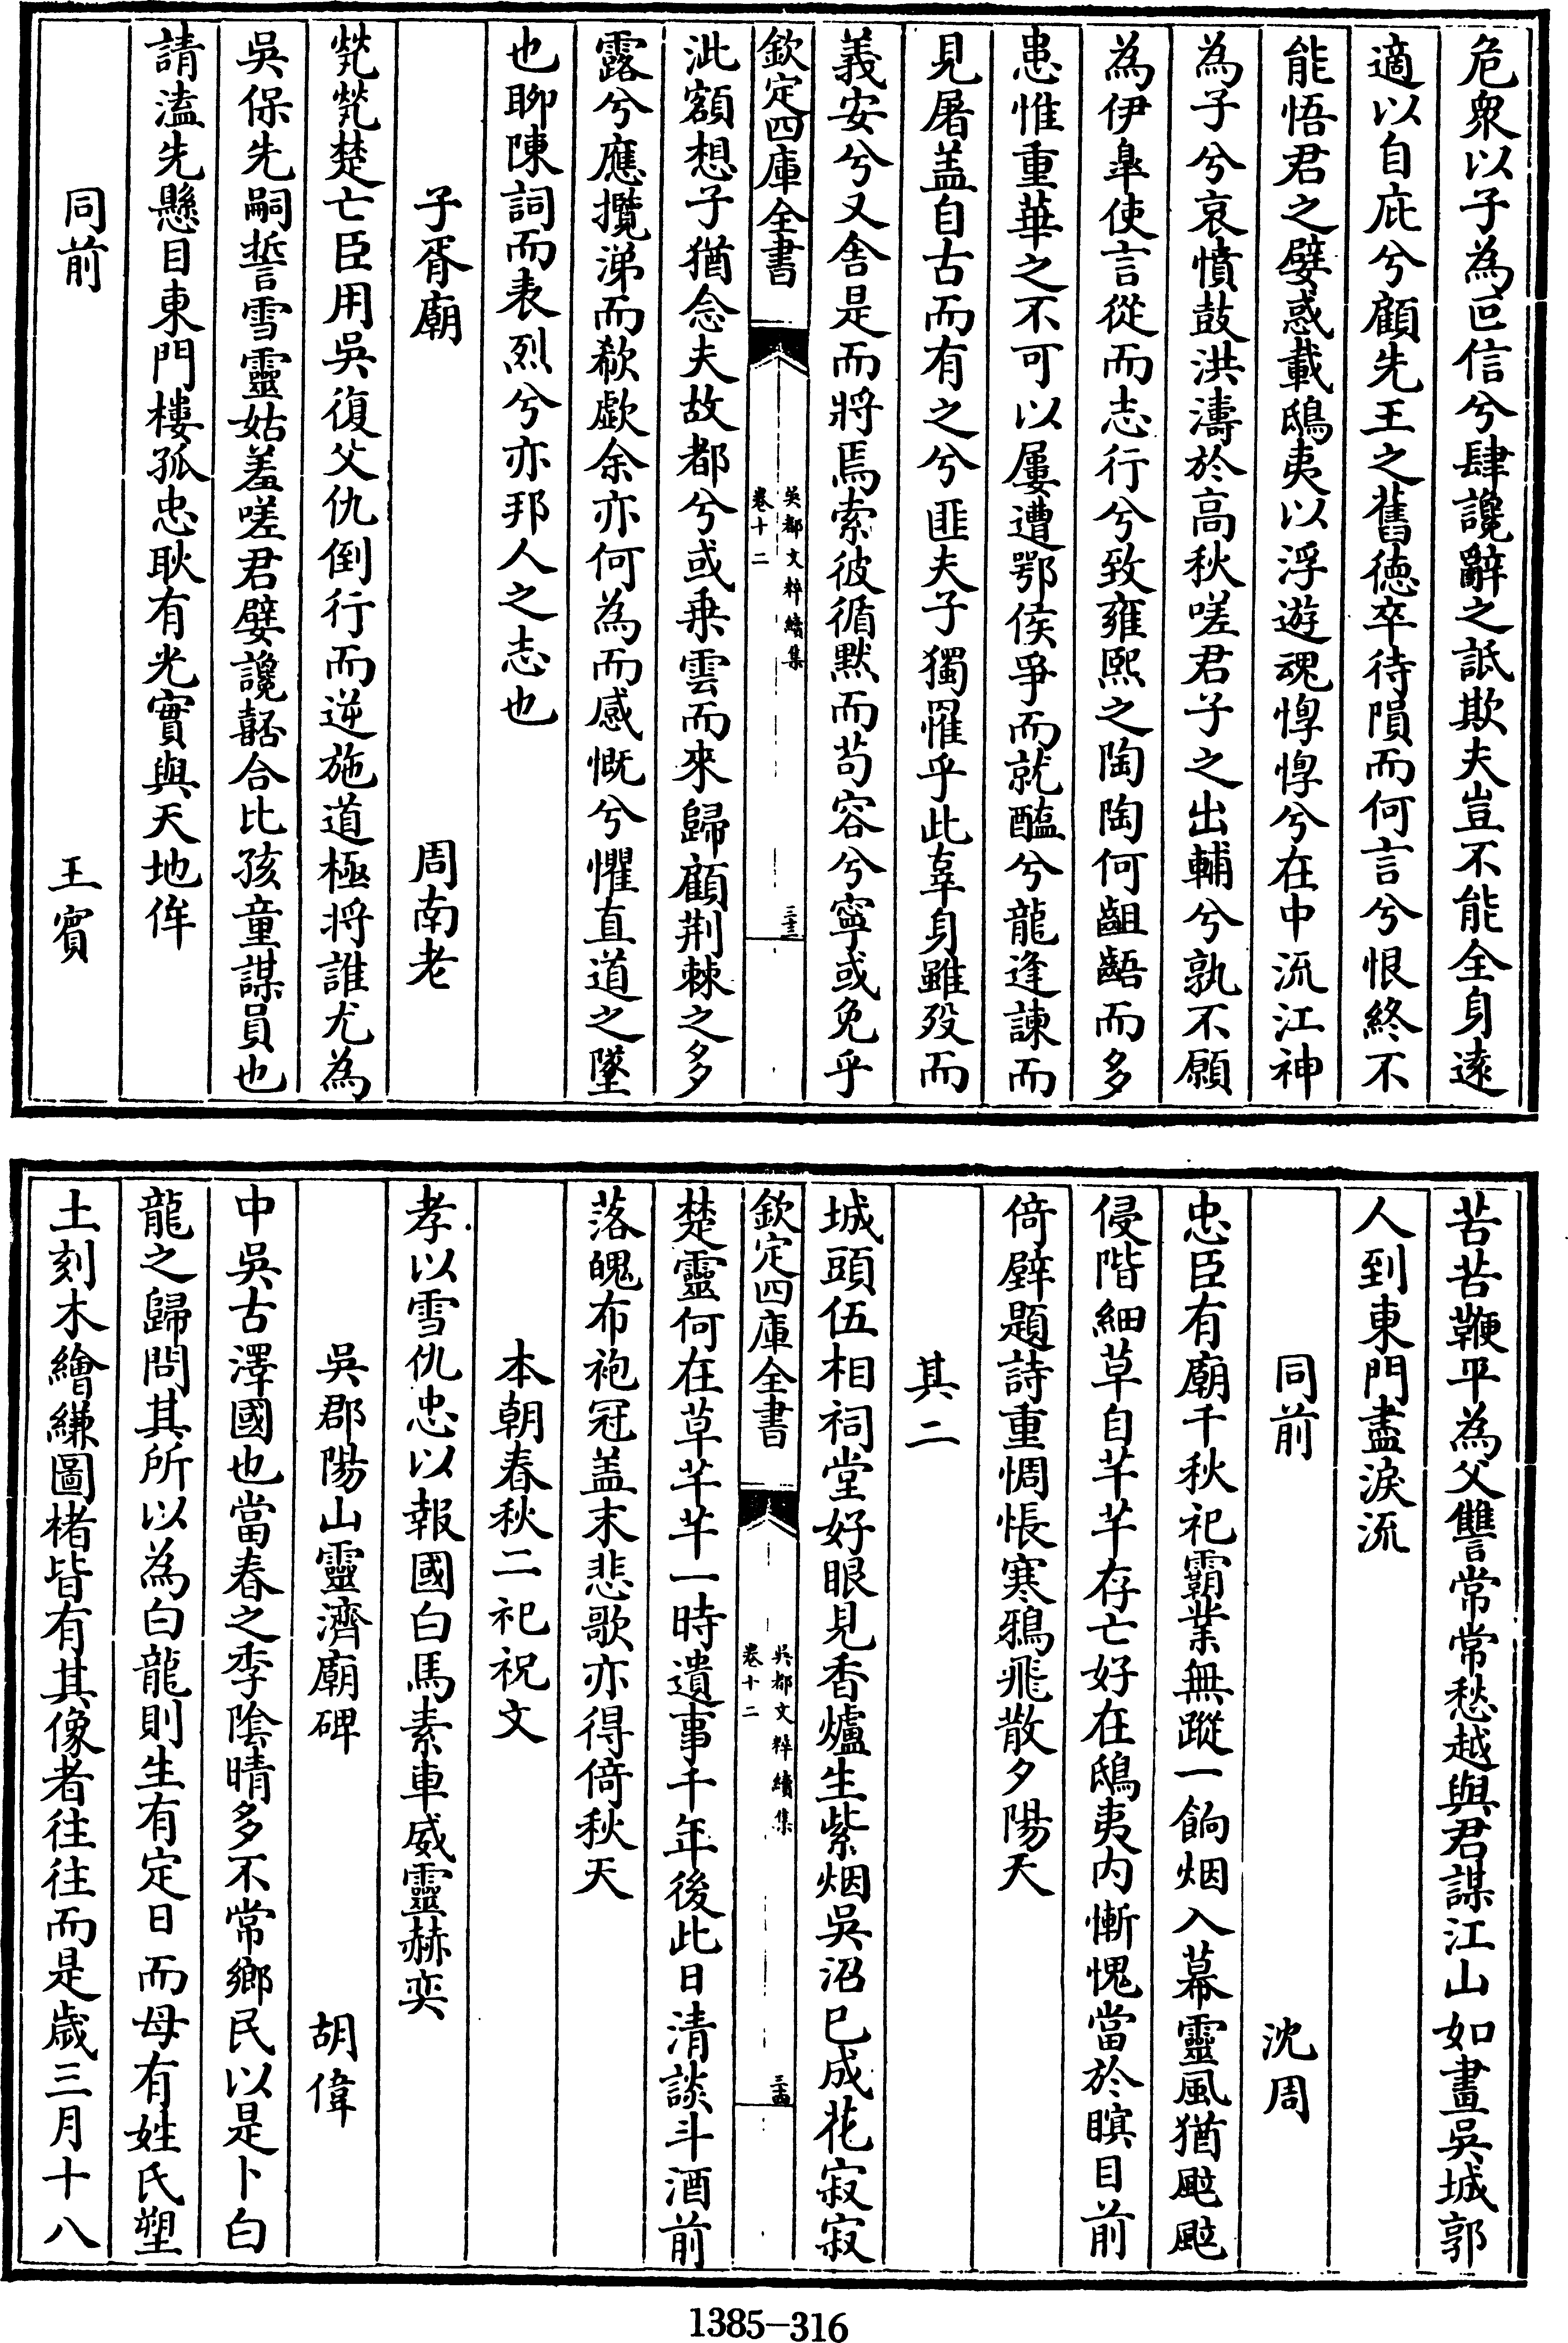 危衆以子為叵信兮肆讒辭之詆欺夫豈不能全身遠
適以自庇兮顧先王之舊徳卒待隕而何言兮恨終不
能悟君之嬖惑載鴟夷以浮遊魂惸惸兮在中流江神
為子兮哀憤鼓洪濤於高秋嗟君子之出輔兮孰不願
為伊臯使言從而志行兮致雍熙之陶陶何齟齬而多
患惟重華之不可以屢遭鄂侯爭而就醢兮龍逢諫而
見屠盖自古而有之兮匪夫子獨罹乎此辜身雖歿而
義安兮又舍是而將焉索彼循黙而茍容兮寧或免乎
欽定四庫全書
吳都文粹續集
卷十二
三十三
泚額想子猶念夫故都兮或乗雲而來歸顧荆棘之多
露兮應攬涕而欷歔余亦何為而感慨兮懼直道之墜
也聊陳詞而表烈兮亦邦人之志也
子胥廟 周南老
煢煢楚亡臣用吳復父仇倒行而逆施道極將誰尤為
吳保先嗣誓雪靈姑羞嗟君嬖讒嚭合比孩童謀員也
請溘先懸目東門樓孤忠耿有光實與天地侔
同前 王賓
苦苦鞭平為父讐常常愁越與君謀江山如畫吳城郭
人到東門盡淚流
同前 沈周
忠臣有廟千秋祀霸業無蹤一餉烟入幕靈風猶颭颭
侵階細草自芊芊存亡好在鴟夷内慚愧當於瞑目前
倚壁題詩重惆悵寒鴉飛散夕陽天
其二
城頭伍相祠堂好眼見香爐生紫烟吳沼已成花寂寂
欽定四庫全書
吳都文粹續集
卷十二
三十四
楚靈何在草芊芊一時遺事千年後此日清談斗酒前
落魄布袍冠盖末悲歌亦得倚秋天
本朝春秋二祀祝文
孝以雪仇忠以報國白馬素車威靈赫奕
吳郡陽山靈濟廟碑 胡偉
中吳古澤國也當春之季陰晴多不常鄉民以是卜白
龍之歸問其所以為白龍則生有定日而母有姓氏塑
土刻木繪縑圖楮皆有其像者往往而是歲三月十八
1385-316